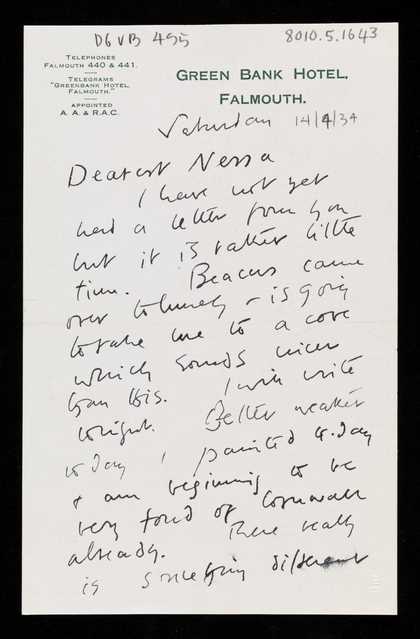 DG VB 495
8010.5.1643
TELEPHONES
FALMOUTH 440 & 441.
TELEGRAMS
"GREENBANK HOTEL,
FALMOUTH."
APPOINTED
A. A. & R.A.C.
GREEN BANK HOTEL,
FALMOUTH.
Saturday 14/4/34
Dearest Nessa
I have not yet
had a letter from you
but it is rather little
time. Beacus came
over to lunch & is going
to take me to a cove
which sounds nicer
than this. I will write
tonight. Better weather
to day I painted to-day
& am beginning to be
very fond of Cornwall
already. There really
is something different